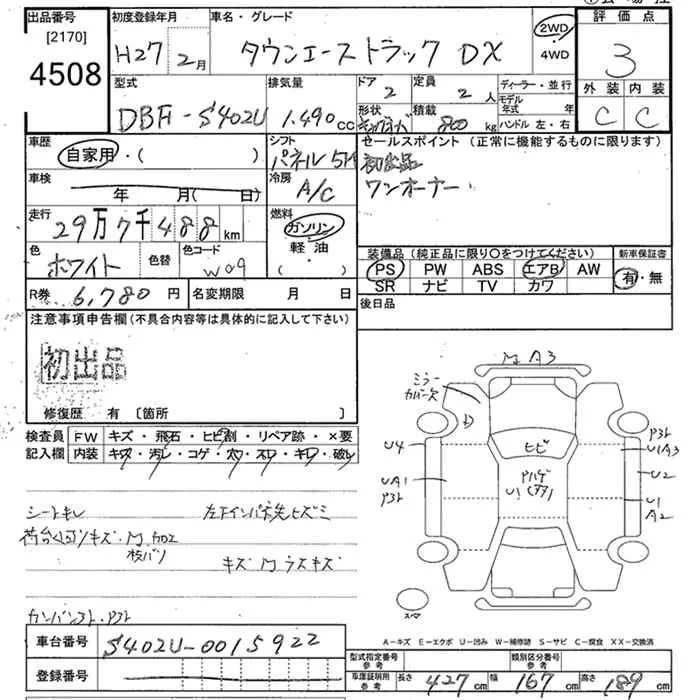 出品番号
[2170]
4508
初度登録年月
H27 2月
車名・グレード
タウンエーストラック DX
2WD
・
4WD
評価点
3
型式
DBF-S402U
排気量
1.490 cc
ドア
2
定員
2 人
ディーラー・並行
モデル年式 年
ハンドル 左・右
形状
積載
800 kg
外装 内装
C C
車歴
自家用・( )
シフト
パネル 5M
セールスポイント (正常に機能するものに限ります)
初出品
ワンオーナー
車検
年 月( 日)
冷房
A/C
走行
29万7千488 km
燃料
ガソリン
・
軽・油
( )
色
ホワイト
色替
色コード
W09
装備品 (純正品に限り〇をつけてください)
新車保証書
PS PW ABS エアB AW
SR ナビ TV カワ
有・無
R券 6,780 円
名変期限 月 日
後日品
注意事項申告欄 (不具合内容等は具体的に記入して下さい)
初出品
修復歴 有 〔箇所 〕
検査員
記入欄
FW キズ・飛石・ヒビ割・リペア跡・×要
内装 キズ・汚レ・コゲ・穴・スレ・キレ・破レ
シートキレ
左下インパネ先ヒズミ
キズ M ラスキズ
M A3
ミラー
カバー欠
ヒビ
U4
UA1
P 3ト
P 3ト
U1A3
U2
U1
A2
アハゲ
スペア
A-キズ E-エクボ U-凹み W-補修跡 S-サビ C-腐食 XX-交換済
車台番号 S402U-0015922
登録番号
型式指定番号
参考
類別区分番号
参考
車庫証明用
参考
長さ 427 cm 幅 167 cm 高さ 189 cm